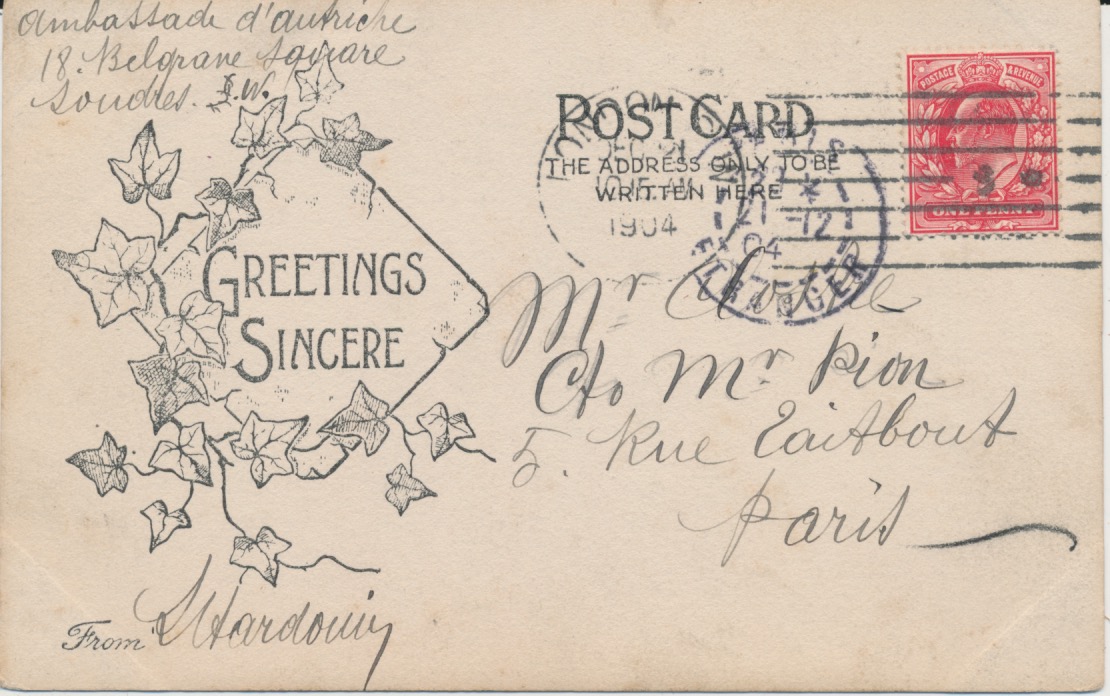 ambassade d'autriche
18. Belgrave Square
Londres. S.W.
GREETINGS
SINCERE
From
POST CARD
THE ADDRESS ONLY TO BE
WRITTEN HERE
POSTAGE & REVENUE
ONE PENNY
LONDON
DEC 21
1904
PARIS
21 -12
04
ETRANGER
Mr
C/o Mr Pion
5. Rue Taitbout
Paris